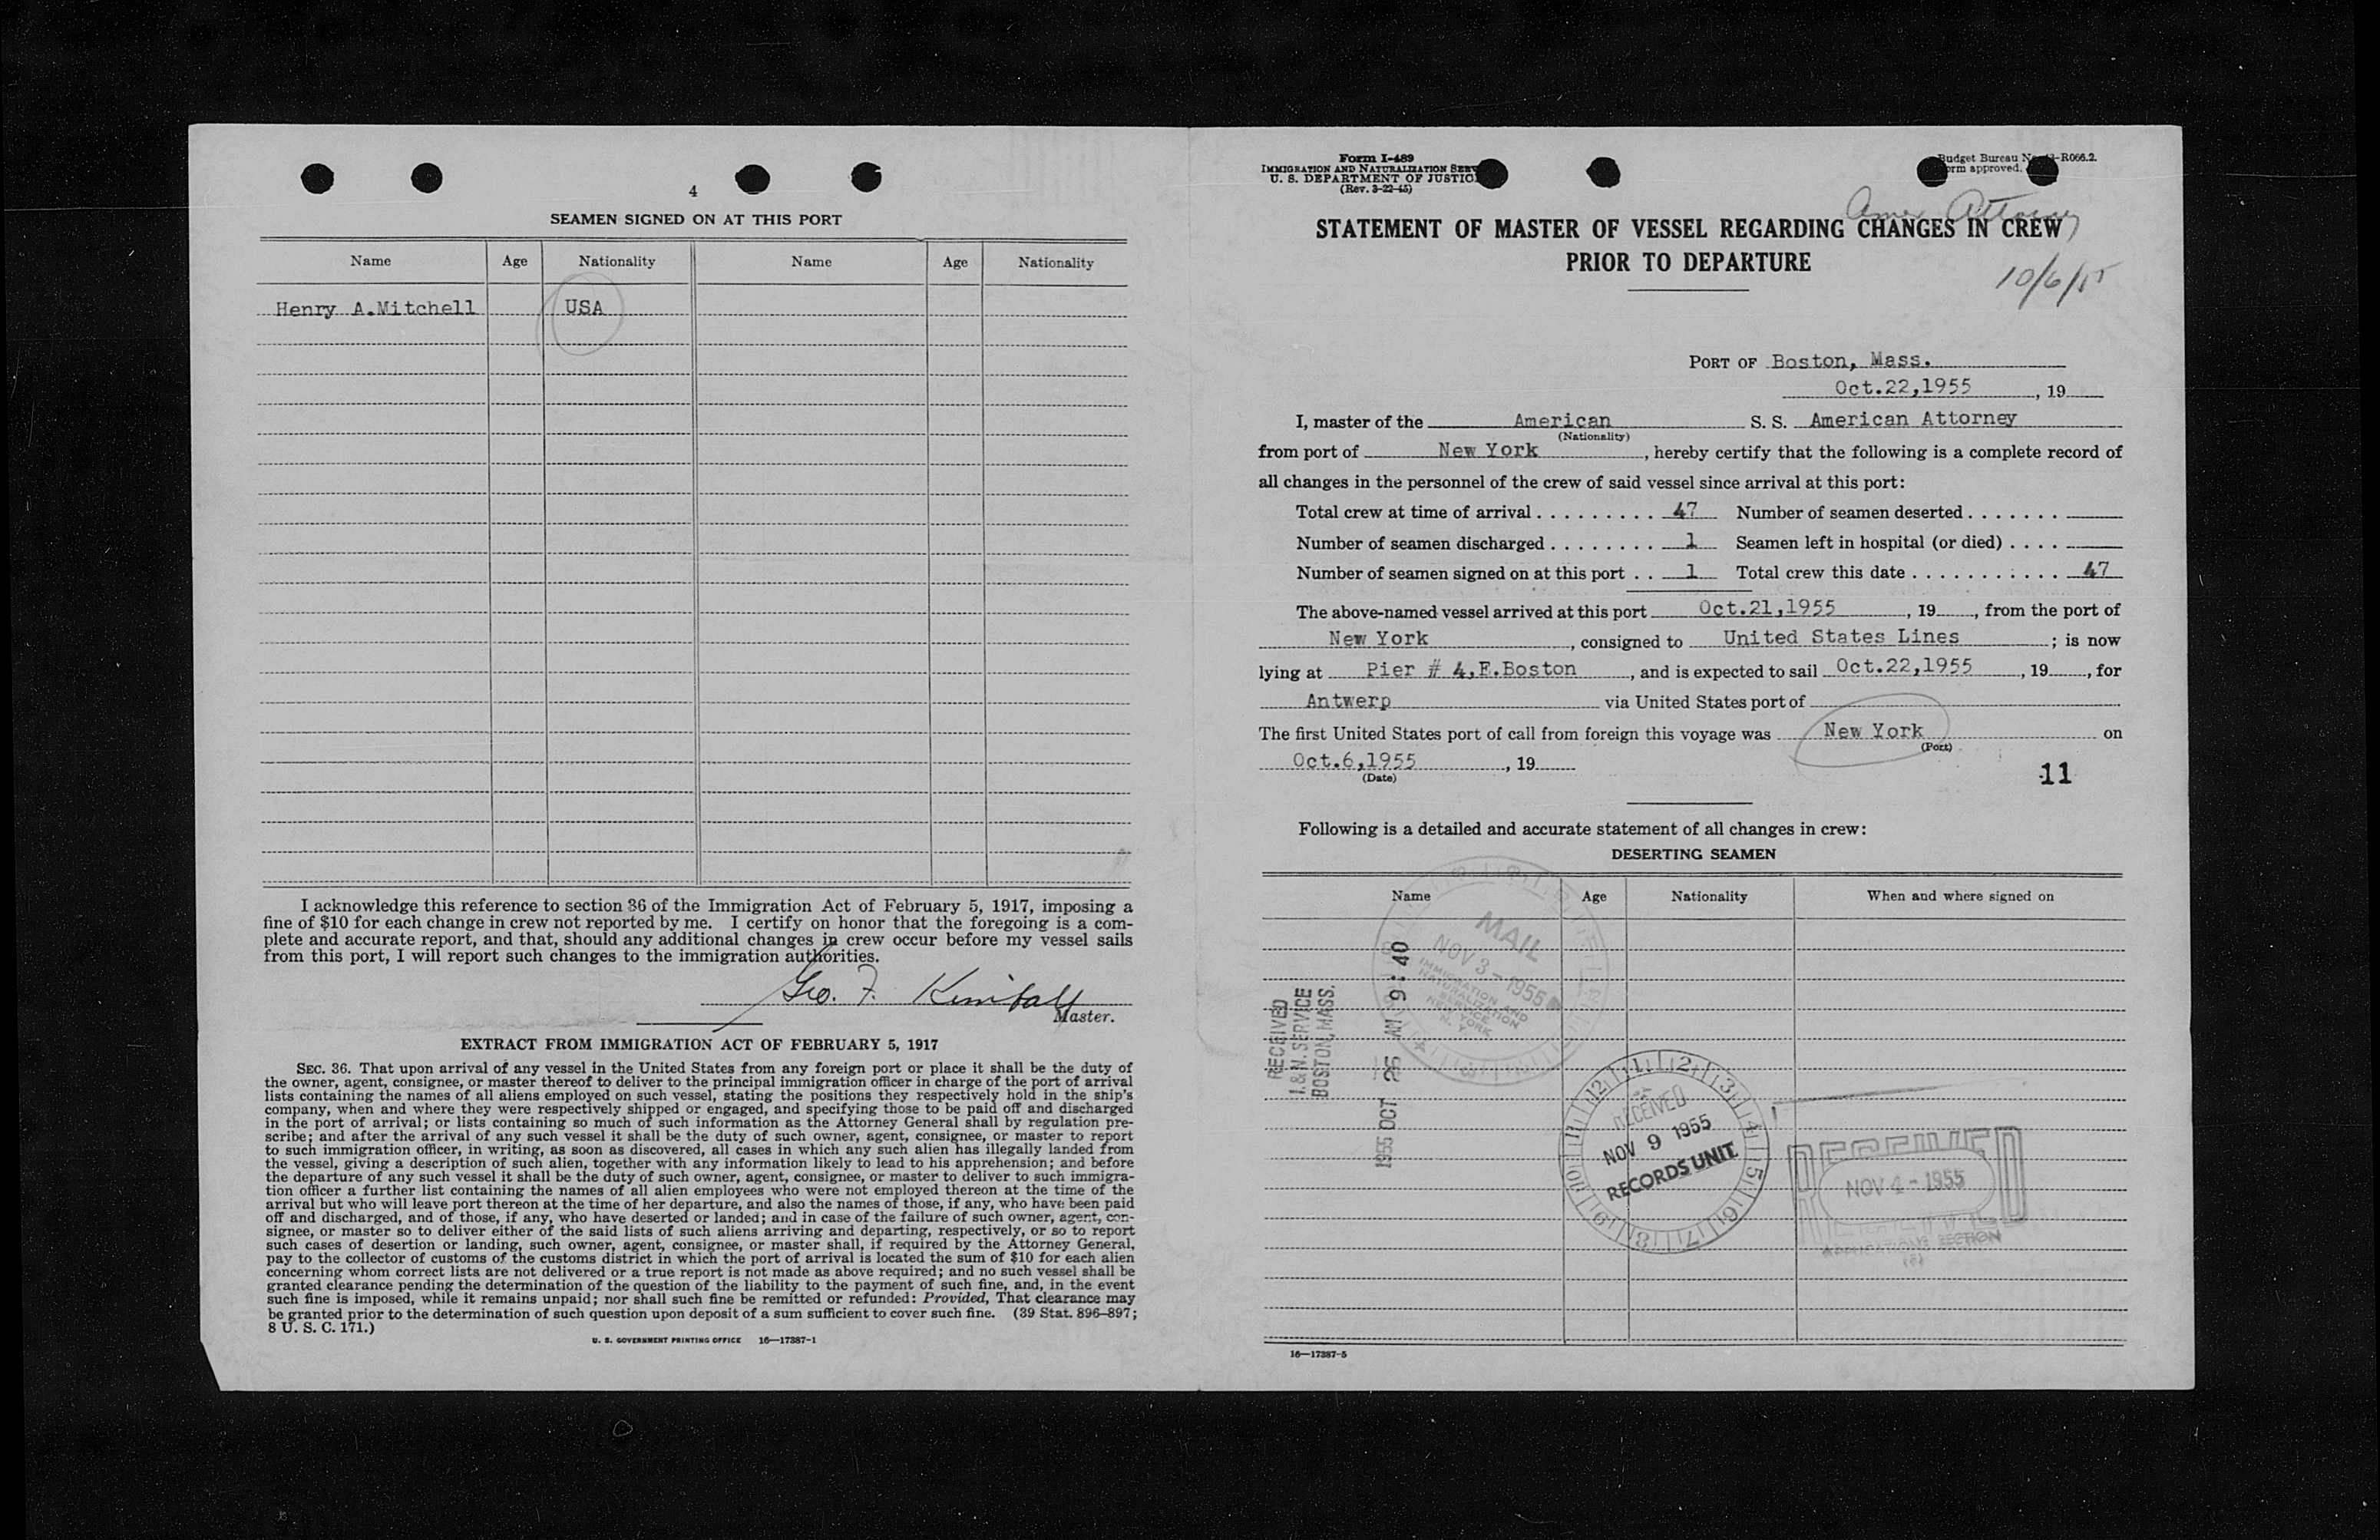 4
SEAMEN SIGNED ON AT THIS PORT
Name Age Nationality Name Age Nationality
Henry A.Mitchell USA
I acknowledge this reference to section 36 of the Immigration Act of February 5, 1917, imposing a
fine of $10 for each change in crew not reported by me. I certify on honor that the foregoing is a com-
plete and accurate report, and that, should any additional changes in crew occur before my vessel sails
from this port, I will report such changes to the immigration authorities.
Geo. F. Kimball
Master.
EXTRACT FROM IMMIGRATION ACT OF FEBRUARY 5, 1917
SEC. 36. That upon arrival of any vessel in the United States from any foreign port or place it shall be the duty of
the owner, agent, consignee, or master thereof to deliver to the principal immigration officer in charge of the port of arrival
lists containing the names of all aliens employed on such vessel, stating the positions they respectively hold in the ship's
company, when and where they were respectively shipped or engaged, and specifying those to be paid off and discharged
in the port of arrival; or lists containing so much of such information as the Attorney General shall by regulation pre-
scribe; and after the arrival of any such vessel it shall be the duty of such owner, agent, consignee, or master to report
to such immigration officer, in writing, as soon as discovered, all cases in which any such alien has illegally landed from
the vessel, giving a description of such alien, together with any information likely to lead to his apprehension; and before
the departure of any such vessel it shall be the duty of such owner, agent, consignee, or master to deliver to such immigra-
tion officer a further list containing the names of all alien employees who were not employed thereon at the time of the
arrival but who will leave port thereon at the time of her departure, and also the names of those, if any, who have been paid
off and discharged, and of those, if any, who have deserted or landed; and in case of the failure of such owner, agent, con-
signee, or master so to deliver either of the said lists of such aliens arriving and departing, respectively, or so to report
such cases of desertion or landing, such owner, agent, consignee, or master shall, if required by the Attorney General,
pay to the collector of customs of the customs district in which the port of arrival is located the sum of $10 for each alien
concerning whom correct lists are not delivered or a true report is not made as above required; and no such vessel shall be
granted clearance pending the determination of the question of the liability to the payment of such fine, and, in the event
such fine is imposed, while it remains unpaid; nor shall such fine be remitted or refunded: Provided, That clearance may
be granted prior to the determination of such question upon deposit of a sum sufficient to cover such fine. (39 Stat. 896–897;
8 U. S. C. 171.)
U. S. GOVERNMENT PRINTING OFFICE 16—17387-1
Form I-489
IMMIGRATION AND NATURALIZATION
U. S. DEPARTMENT OF
(Rev. 3-22-45)
Budget Bureau R066.2.
approved.
Amer Attorney
STATEMENT OF MASTER OF VESSEL REGARDING CHANGES IN CREW
PRIOR TO DEPARTURE
10/6/55
PORT OF Boston, Mass.
Oct.22,1955, 19
I, master of the American S. S. American Attorney
(Nationality)
from port of New York, hereby certify that the following is a complete record of
all changes in the personnel of the crew of said vessel since arrival at this port:
Total crew at time of arrival . . . . . . . . . . 47 Number of seamen deserted . . . . . . .
Number of seamen discharged . . . . . . . . 1 Seamen left in hospital (or died) . . . .
Number of seamen signed on at this port . . 1 Total crew this date . . . . . . . . . . . . 47
The above-named vessel arrived at this port Oct.21,1955, 19, from the port of
New York, consigned to United States Lines; is now
lying at Pier # 4,E.Boston, and is expected to sail Oct.22,1955, 19, for
Antwerp via United States port of
The first United States port of call from foreign this voyage was New York on
(Port)
Oct.6,1955, 19
(Date)
11
Following is a detailed and accurate statement of all changes in crew:
DESERTING SEAMEN
Name Age Nationality When and where signed on
MAIL
NOV 3 - 1955
IMMIGRATION AND
NATURALIZATION
SERVICE
NEW YORK
N. Y.
RECEIVED
I. & N. SERVICE
BOSTON, MASS.
1955 OCT 26 AM 9:40
12 1 2 3 4 5 6 7 8 9 10 11
RECEIVED
NOV 9 1955
RECORDS UNIT
RECEIVED
NOV 4 - 1955
SECTION
16—17387-5